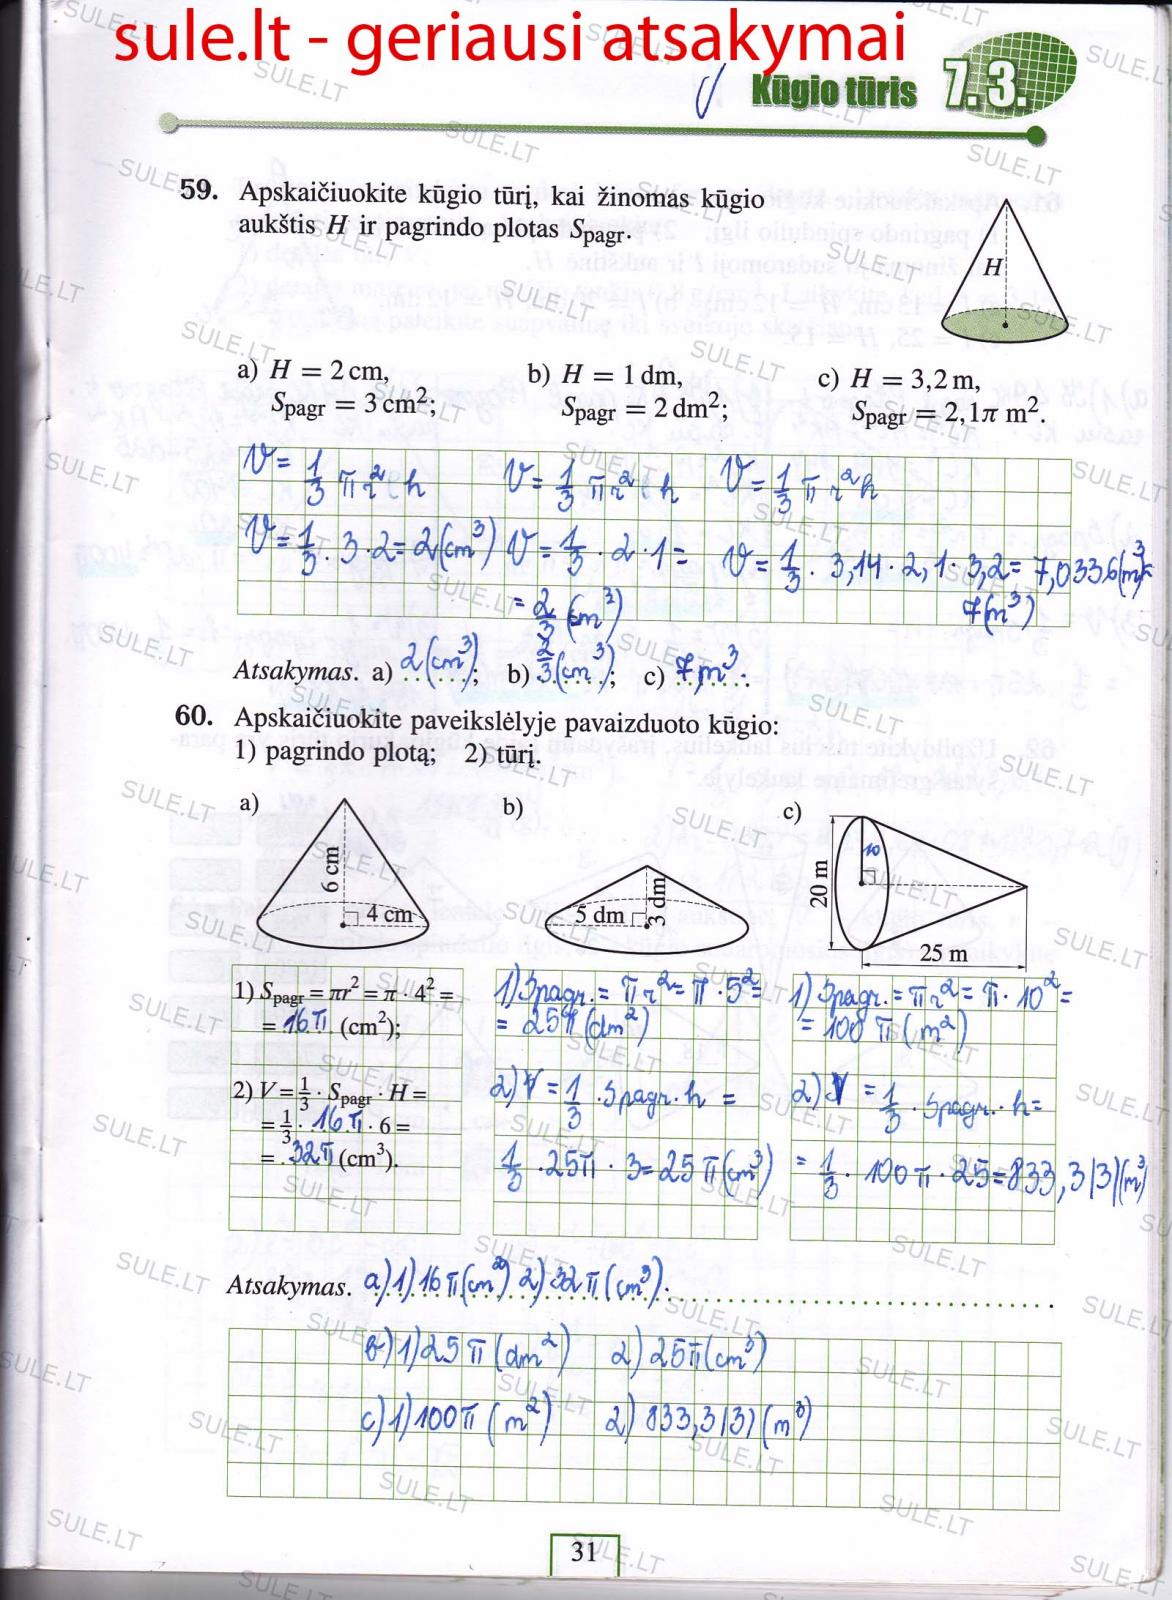 sule.lt - geriausi atsakymai
Kūgio tūris 7.3.
59. Apskaičiuokite kūgio tūrį, kai žinomas kūgio
aukštis H ir pagrindo plotas Spagr.
H
a) H = 2 cm,
Spagr = 3 cm²;
b) H = 1 dm,
Spagr = 2 dm²;
c) H = 3,2 m,
Spagr = 2,1π m².
V = 1/3 π r² h
V = 1/3 π r² h
V = 1/3 π r² h
V = 1/3 · 3 · 2 = 2 (cm³)
V = 1/3 · 2 · 1 =
= 2/3 (cm³)
V = 1/3 · 3,14 · 2,1 · 3,2 = 7,0336 (m³)≈
7 (m³)
Atsakymas. a) 2 (cm³); b) 2/3 (cm³); c) 7 m³.
60. Apskaičiuokite paveikslėlyje pavaizduoto kūgio:
1) pagrindo plotą; 2) tūrį.
a)
6 cm
4 cm
b)
5 dm
3 dm
c)
20 m
10
25 m
1) Spagr = πr² = π · 4² =
= 16π (cm²);
2) V = 1/3 · Spagr · H =
= 1/3 · 16π · 6 =
= 32π (cm³).
1) Spagr. = πr² = π · 5² =
= 25π (dm²)
2) V = 1/3 · Spagr. · h =
1/3 · 25π · 3 = 25π (cm³)
1) Spagr. = πr² = π · 10² =
= 100π (m²)
2) V = 1/3 · Spagr. · h =
= 1/3 · 100π · 25 = 833,3(3) (m³)
Atsakymas. a) 1) 16π (cm²) 2) 32π (cm³).
b) 1) 25π (dm²) 2) 25π (cm³)
c) 1) 100π (m²) 2) 833,3(3) (m³)
31
SULE.LT